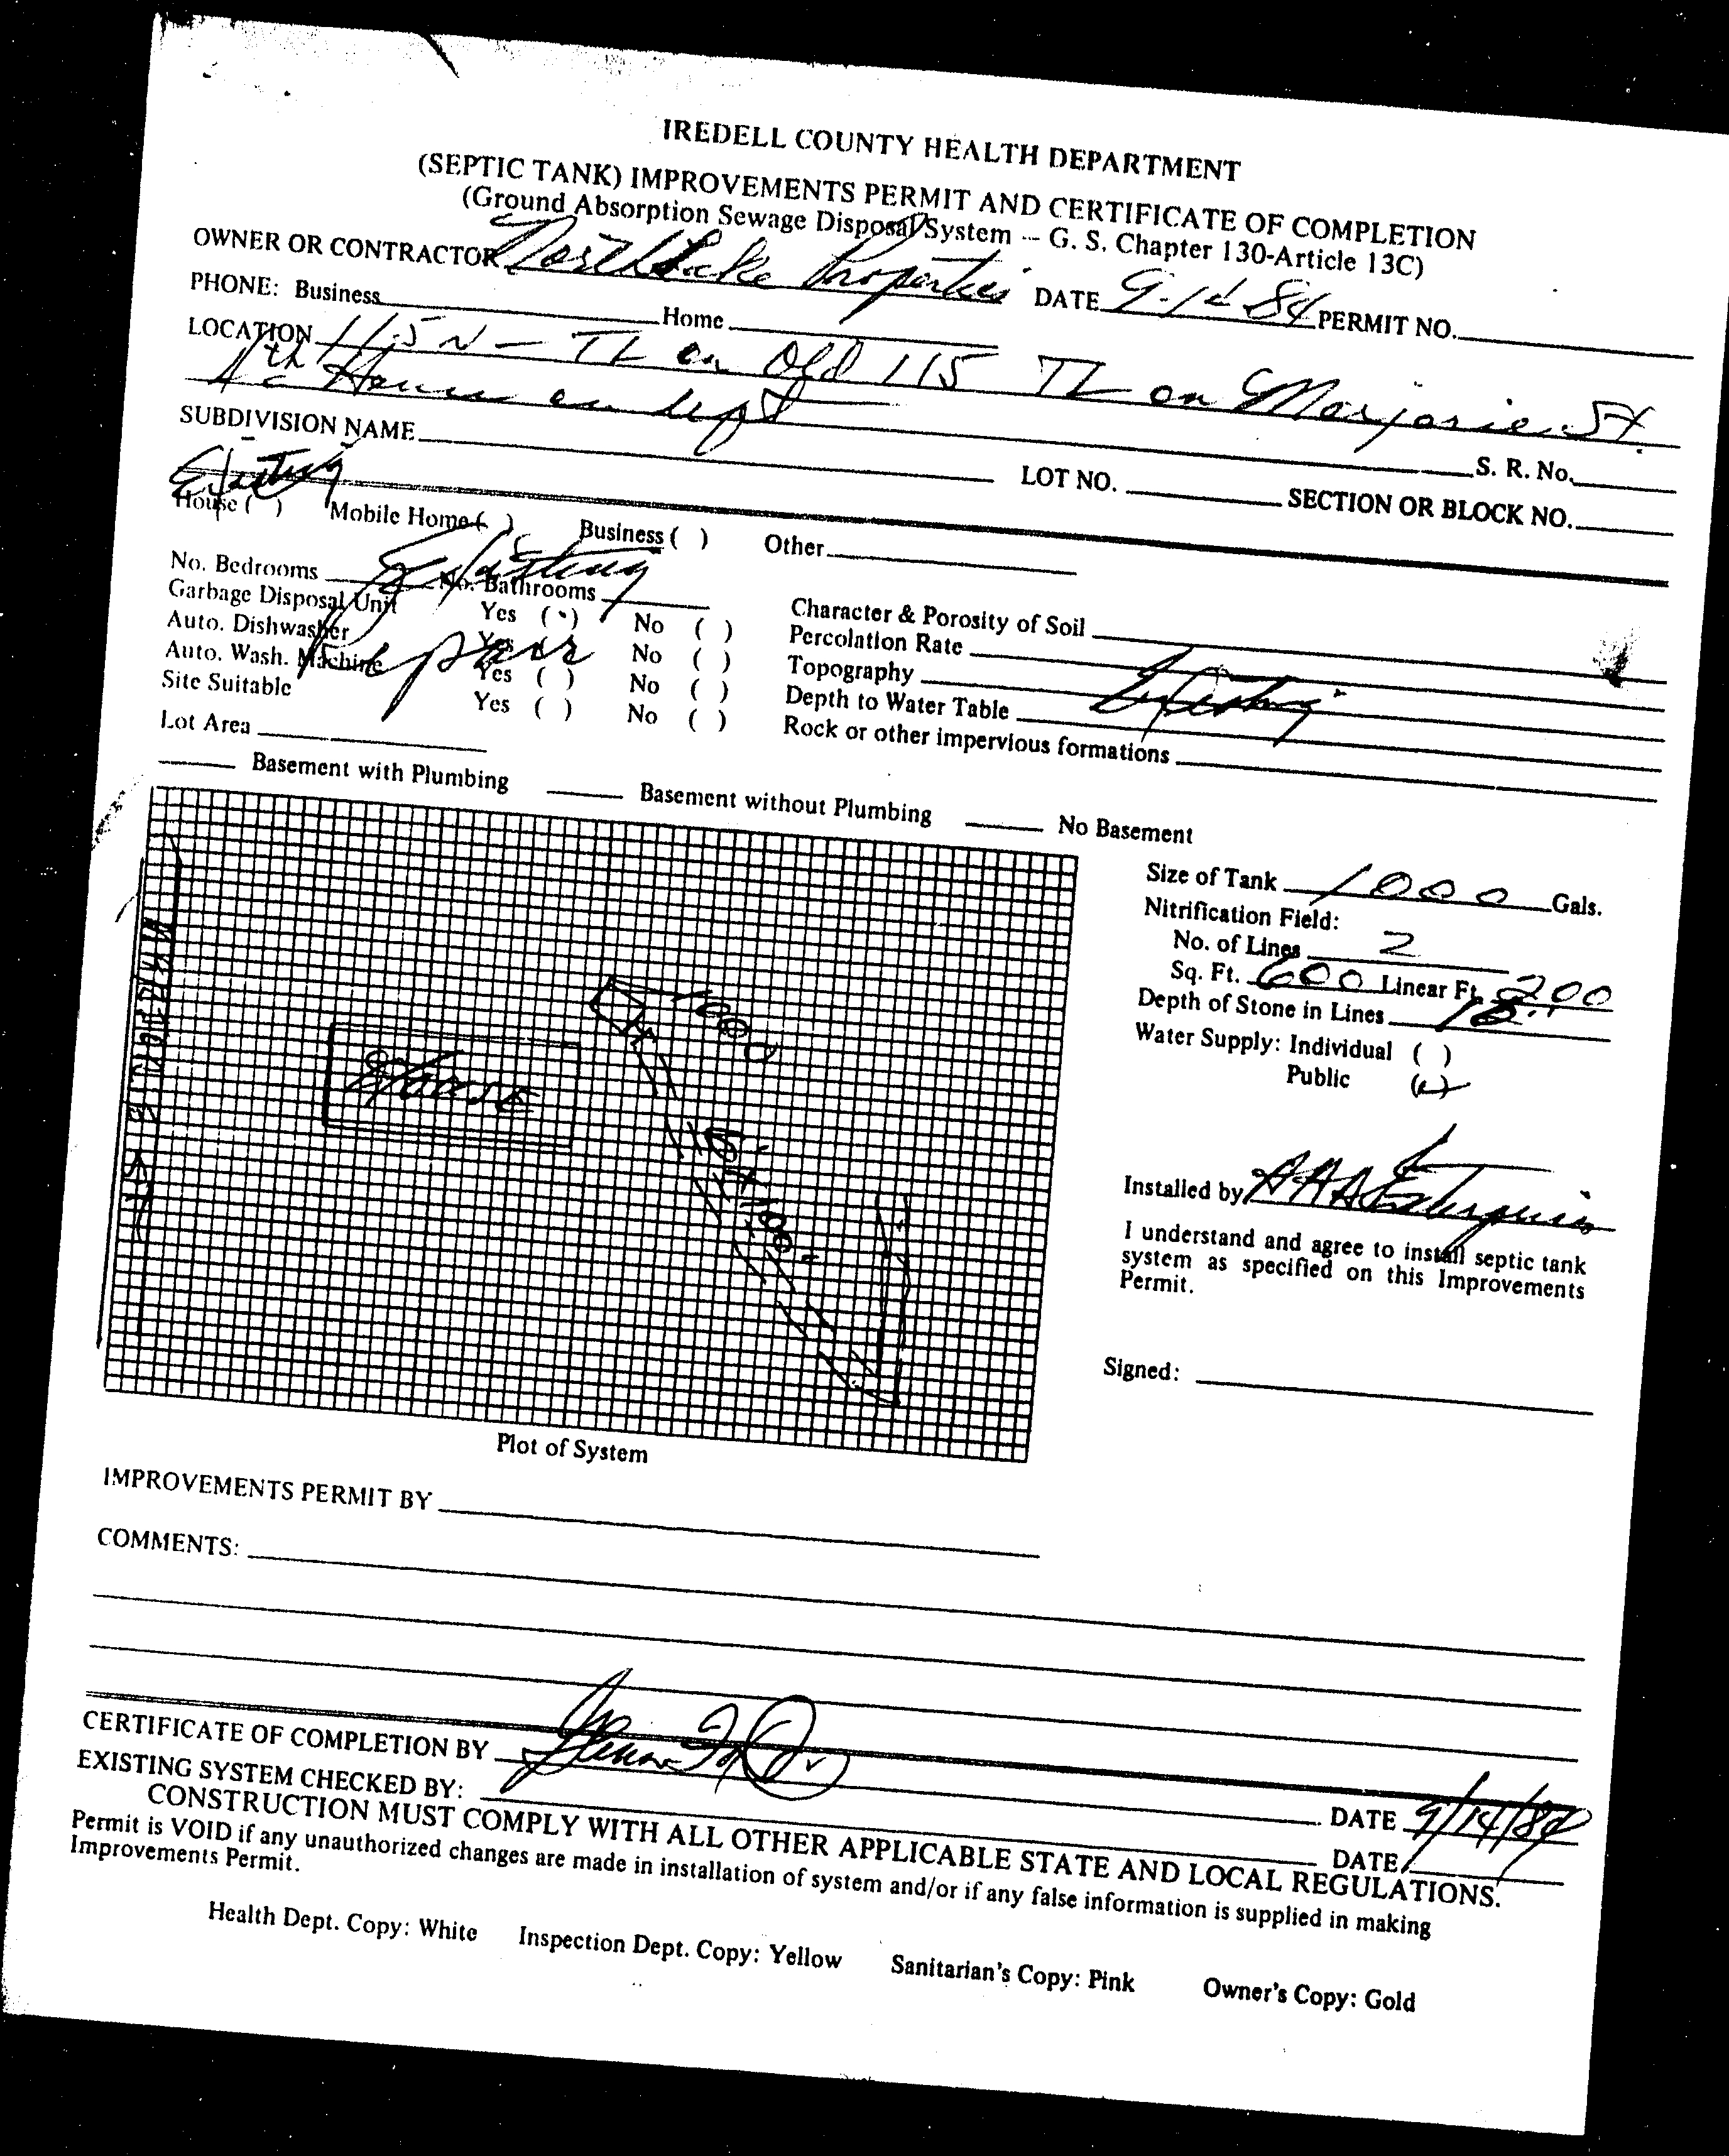 IREDELL COUNTY HEALTH DEPARTMENT
(SEPTIC TANK) IMPROVEMENTS PERMIT AND CERTIFICATE OF COMPLETION
(Ground Absorption Sewage Disposal System — G. S. Chapter 130-Article 13C)
OWNER OR CONTRACTOR Northlake Properties DATE 9-14-84 PERMIT NO.
PHONE: Business Home
LOCATION 115 N — TL on Old 115 TL on Marjorie St.
4th House on left
SUBDIVISION NAME S. R. No.
LOT NO. SECTION OR BLOCK NO.
Existing
House ( ) Mobile Home ( ) Business ( ) Other
No. Bedrooms Existing No. Bathrooms
Garbage Disposal Unit Yes ( ) No ( )
Auto. Dishwasher Yes No ( )
Repair
Auto. Wash. Machine Yes ( ) No ( )
Site Suitable Yes ( ) No ( )
Lot Area
Character & Porosity of Soil
Percolation Rate
Topography Existing
Depth to Water Table
Rock or other impervious formations
Basement with Plumbing Basement without Plumbing No Basement
MARJORIE ST
House
1000
3'x100'
Plot of System
Size of Tank 1000 Gals.
Nitrification Field:
No. of Lines 2
Sq. Ft. 600 Linear Ft. 200
Depth of Stone in Lines
Water Supply: Individual ( )
Public (✓)
Installed by AAA Enterprises
I understand and agree to install septic tank
system as specified on this Improvements
Permit.
Signed:
IMPROVEMENTS PERMIT BY
COMMENTS:
CERTIFICATE OF COMPLETION BY DATE 9/14/84
EXISTING SYSTEM CHECKED BY: DATE
CONSTRUCTION MUST COMPLY WITH ALL OTHER APPLICABLE STATE AND LOCAL REGULATIONS.
Permit is VOID if any unauthorized changes are made in installation of system and/or if any false information is supplied in making
Improvements Permit.
Health Dept. Copy: White Inspection Dept. Copy: Yellow Sanitarian's Copy: Pink Owner's Copy: Gold